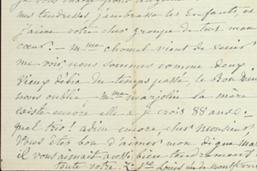 mes tendresses j'embrasse les Enfants, et
j'aime votre cher groupe de tout mon
cœur. — Mme Chomel vient de venir
me voir nous sommes comme deux
vieux débris du temps passé, le Bon Dieu
nous oublie, Mme Marjolin la mère
existe encore elle a je crois 88 ans :
quel trio ! adieu encore cher Monsieur,
Vous êtes bon d'aimer mon digne Mari
il vous aimait aussi bien tendrement
Toute votre.